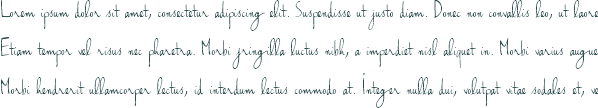 Lorem ipsum dolor sit amet, consectetur adipiscing elit. Suspendisse ut justo diam. Donec non convallis leo, ut laore
Etiam tempor vel risus nec pharetra. Morbi fringilla luctus nibh, a imperdiet nisl aliquet in. Morbi varius augue
Morbi hendrerit ullamcorper lectus, id interdum lectus commodo at. Integer nulla dui, volutpat vitae sodales et, ve